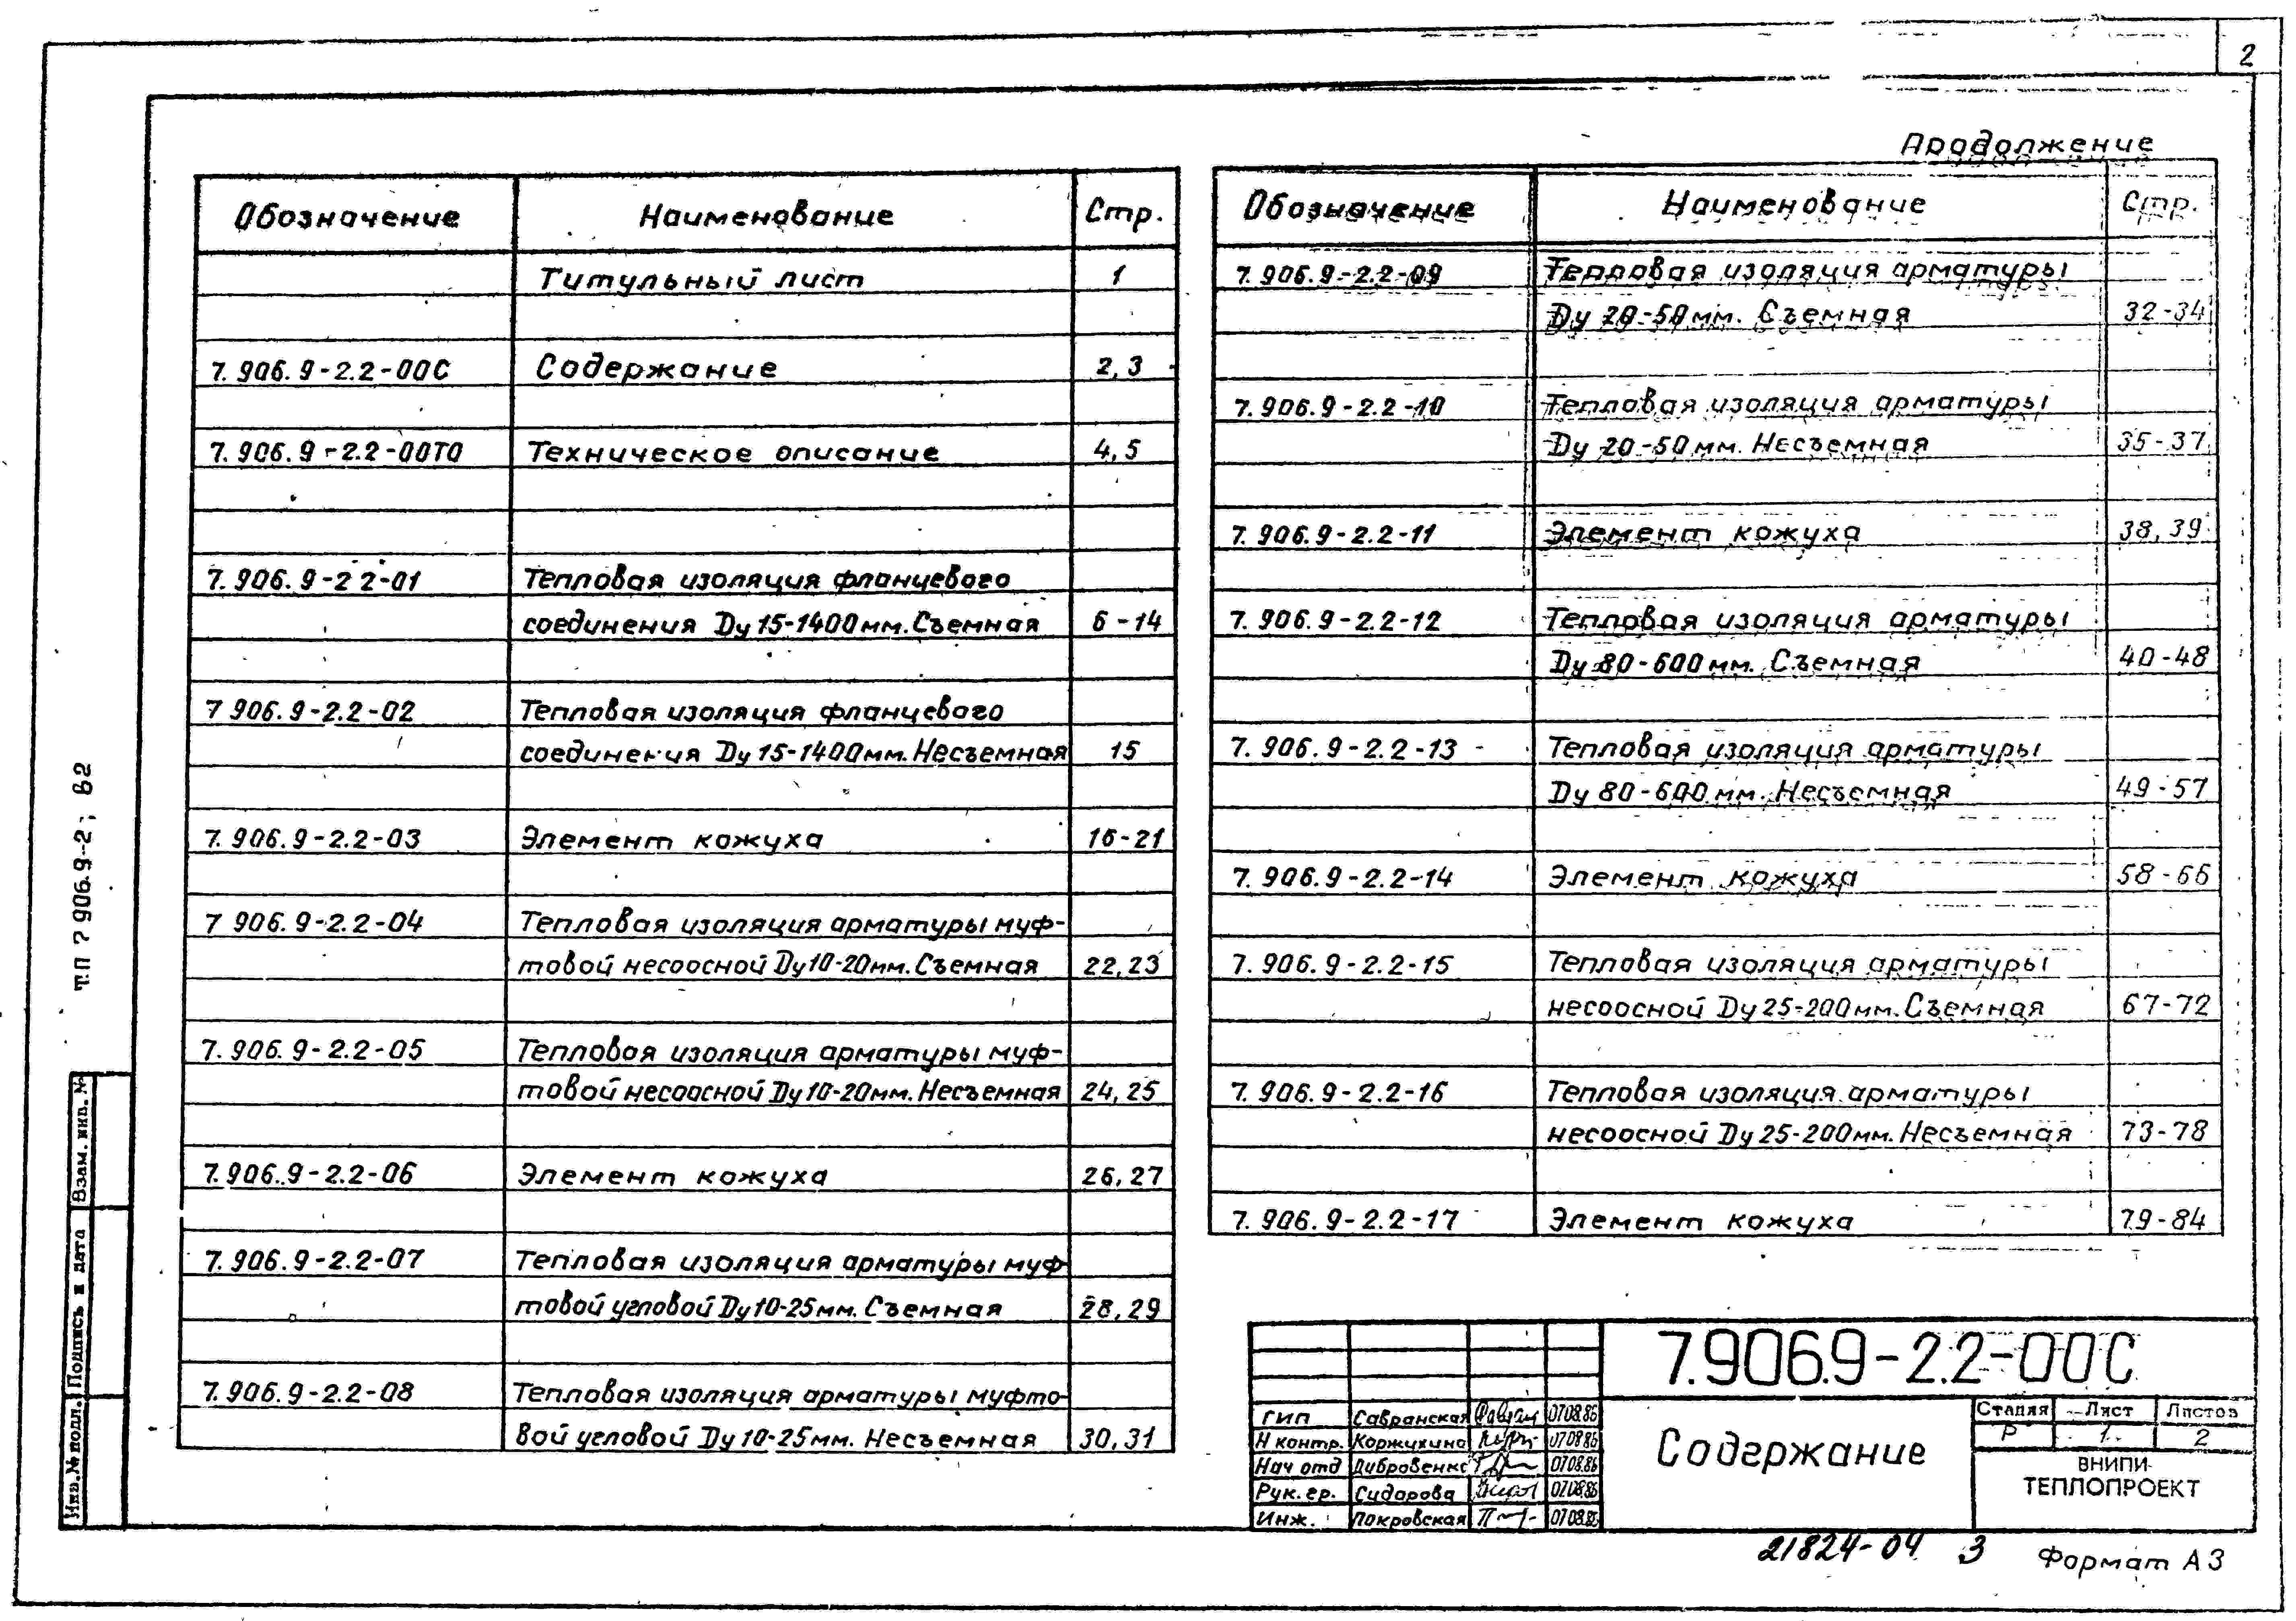 2
Продолжение
Обозначение Наименование Стр.
Титульный лист 1
7.906.9-2.2-00С Содержание 2,3
7.906.9-2.2-00ТО Техническое описание 4,5
7.906.9-2 2-01 Тепловая изоляция фланцевого
соединения Dу 15-1400мм. Съемная 6-14
7 906.9-2.2-02 Тепловая изоляция фланцевого
соединения Dу 15-1400мм. Несъемная 15
7.906.9-2.2-03 Элемент кожуха 16-21
7 906.9-2.2-04 Тепловая изоляция арматуры муф-
товой несоосной Dу 10-20мм. Съемная 22,23
7.906.9-2.2-05 Тепловая изоляция арматуры муф-
товой несоосной Dу 10-20мм. Несъемная 24,25
7.906.9-2.2-06 Элемент кожуха 26,27
7.906.9-2.2-07 Тепловая изоляция арматуры муф-
товой угловой Dу 10-25мм. Съемная 28,29
7.906.9-2.2-08 Тепловая изоляция арматуры муфто-
вой угловой Dу 10-25мм. Несъемная 30,31
Обозначение Наименование Стр.
7.906.9-2.2-09 Тепловая изоляция арматуры
Dу 20-50мм. Съемная 32-34
7.906.9-2.2-10 Тепловая изоляция арматуры
Dу 20-50мм. Несъемная 35-37
7.906.9-2.2-11 Элемент кожуха 38,39
7.906.9-2.2-12 Тепловая изоляция арматуры
Dу 80-600мм. Съемная 40-48
7.906.9-2.2-13 Тепловая изоляция арматуры
Dу 80-600мм. Несъемная 49-57
7.906.9-2.2-14 Элемент кожуха 58-66
7.906.9-2.2-15 Тепловая изоляция арматуры
несоосной Dу 25-200мм. Съемная 67-72
7.906.9-2.2-16 Тепловая изоляция арматуры
несоосной Dу 25-200мм. Несъемная 73-78
7.906.9-2.2-17 Элемент кожуха 79-84
Т.П 7 906.9-2; В2
Взам. инв. №
Подпись и дата
Инв. № подл.
7.906.9-2.2-00С
ГИП Савранская 07.08.86
Н контр. Коржихина 07.08.86
Нач отд Дибровенко 07.08.86
Рук. гр. Сидорова 07.08.86
Инж. Покровская 07.08.86
Содержание
Стадия Лист Листов
Р 1 2
ВНИПИ-
ТЕПЛОПРОЕКТ
21824-04 3
Формат А3